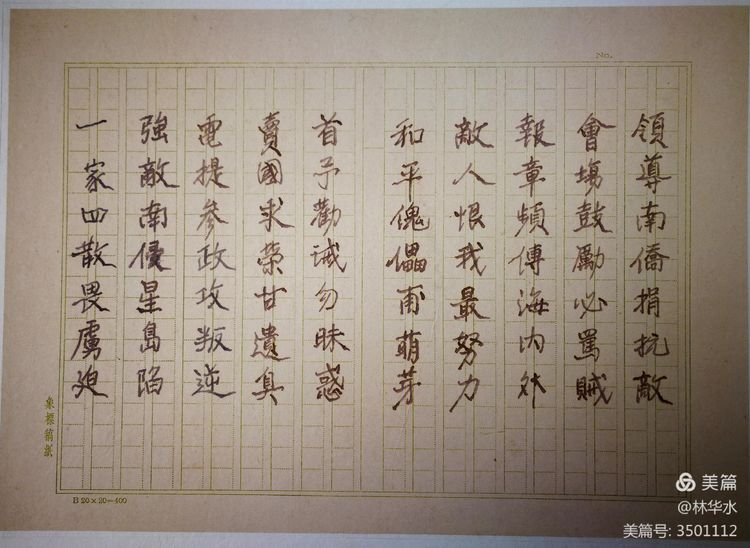 No.
領導南僑捐抗敵
會場鼓勵必罵賊
報章頻傳海內外
敵人恨我最努力
和平傀儡甫萌芽
首予勸诫勿昧惑
賣國求榮甘遺臭
電提參政攻叛逆
強敵南侵星島陷
一家四散畏虜迫
象標稿紙
B 20×20=400
美篇
@林华水
美篇号: 3501112